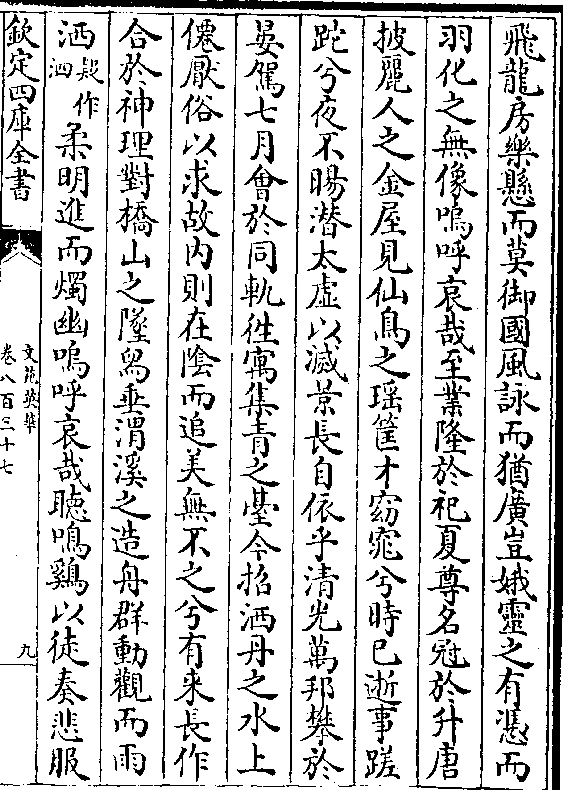 飛龍房樂懸而莫御國風詠而猶廣豈娥靈之有憑而
羽化之無像嗚呼哀哉至業隆於祀夏尊名冠於升唐
披麗人之金屋見仙鳥之瑶筐才窈窕兮時已逝事蹉
跎兮夜不暘潜太虚以滅景長自依乎清光萬邦攀於
晏駕七月會於同軌徃寓集青之臺今招洒丹之水上
僊厭俗以求故内則在陰而追美無不之兮有来長作
合於神理對橋山之墜舄垂渭溪之造舟群動觀而雨
洒疑作泗柔明進而燭幽嗚呼哀哉聴鳴鷄以徒奏悲服
欽定四庫全書
文苑英華
卷八百三十七
九